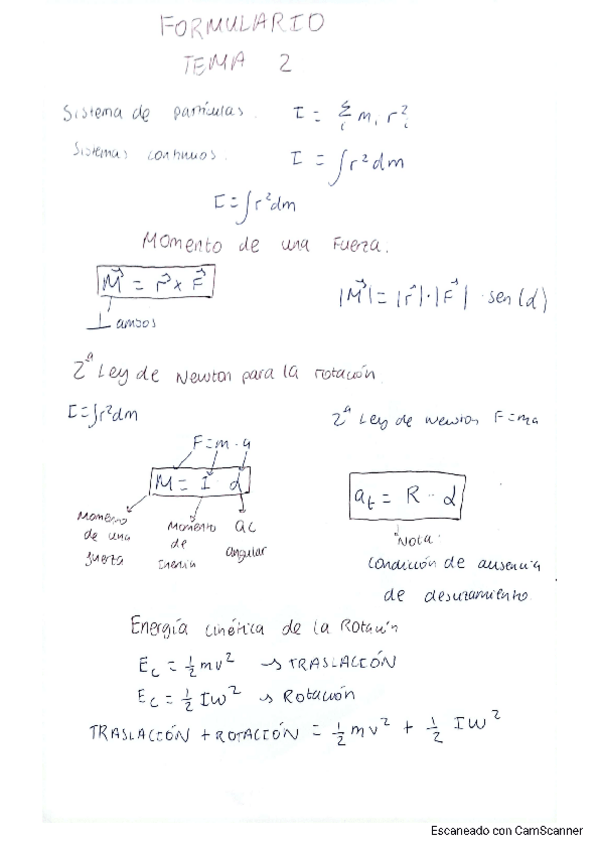 FORMULARIO
TEMA 2
Sistema de partículas. I = Σ_i m_i r_i²
Sistemas continuos. I = ∫r²dm
I = ∫r²dm
Momento de una Fuerza.
M⃗ = r⃗ × F⃗ |M⃗| = |r⃗|·|F⃗| · sen(α)
⊥ ambos
2ª Ley de Newton para la rotación
I = ∫r²dm 2ª Ley de Newton F = ma
F = m · a
M = I · α a_t = R · α
Momento de una fuerza
Momento de Inercia
ac angular
Nota:
condición de ausencia
de deslizamiento.
Energía cinética de la Rotación
E_c = ½ mv² → TRASLACCIÓN
E_c = ½ Iω² → Rotación
TRASLACCIÓN + ROTACIÓN = ½ mv² + ½ Iω²
Escaneado con CamScanner